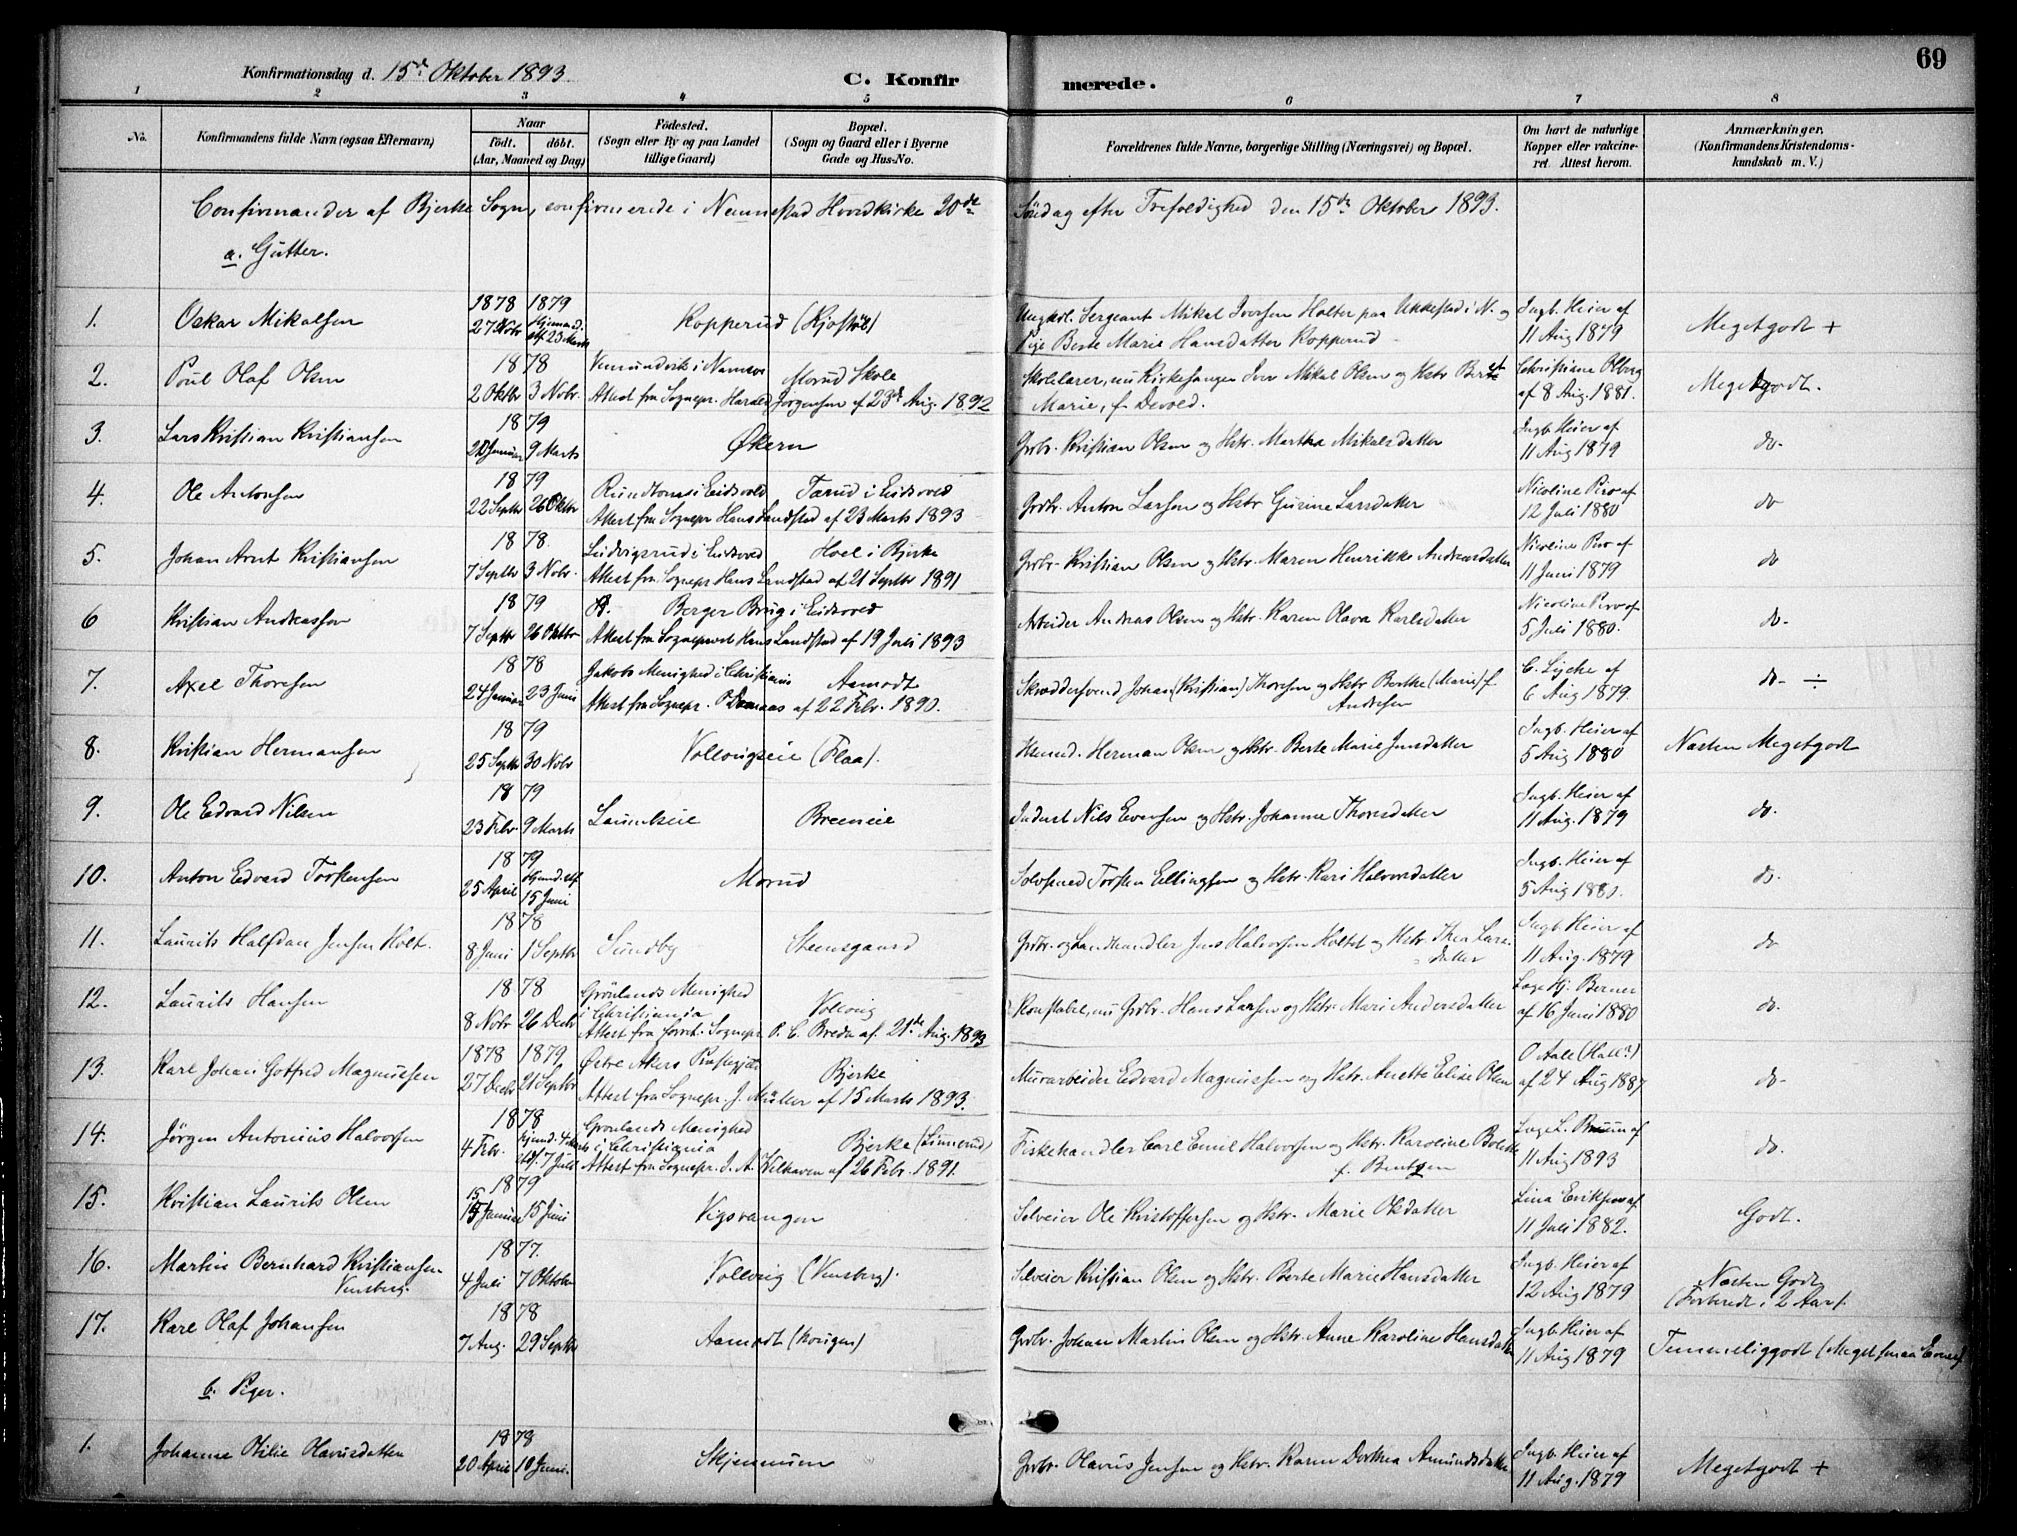 69
Konfirmationsdag d. 15de Oktober 1893.
C. Konfir merede.
1 2 3 4 5 6 7 8
No.
Konfirmandens fulde Navn (ogsaa Efternavn)
Naar
født. døbt.
(Aar, Maaned og Dag)
Fødested.
(Sogn eller By og paa Landet
tillige Gaard)
Bopæl.
(Sogn og Gaard eller i Byerne
Gade og Hus-No.
Forældrenes fulde Navne, borgerlige Stilling (Næringsvei) og Bopæl.
Om havt de naturlige
Kopper eller vakcine-
ret. Attest herom.
Anmærkninger.
(Konfirmandens Kristendoms-
kundskab m. V.)
Confirmander af Bjerke Sogn, confirmerede i Nannestad Hovedkirke 20de Søndag efter Trefoldighed den 15de Oktober 1893.
a. Gutter.
1. Oskar Mikalsen 1878 27 Novbr 1879 Hjemmed. 23 Marts Kopperud (Kjøstøl) Ungkrl. Sergeant Mikal Iversen Holter paa Ukkestad i N. og
Pige Berte Marie Hansdatter Kopperud Ingb. Heier af
11 Aug 1879 Megetgodt +
2. Poul Olaf Olsen 1878 2 Oktbr 3 Novbr. Vemundvik i Namsos Morud Skole
Attest fra Sognepr. Harald Jørgensen af 23de Aug. 1892
Skolelærer, nu Kirkesanger Iver Mikal Olsen og Hstr Berte
Marie, f. Devold. Christiane Olberg
af 8 Aug. 1881. Megetgodt.
3. Lars Kristian Kristiansen 1879 Januar 9 Marts Økern Grbr. Kristian Olsen og Hstr. Martha Mikalsdatter Ingb. Heier af
11 Aug 1879 do.
4. Ole Antonsen 1879 22 Septbr 26 Oktbr Rundtoms i Eidsvold Tærud i Eidsvold
Attest fra Sognepr Hans Landstad af 23 Marts 1893
Grdbr. Anton Larsen og Hstr Gurine Larsdatter Nicoline Piro af
12 Juli 1880 do
5. Johan Arnt Kristiansen 1878. 7 Septbr 3 Novbr. Ludvigsrud i Eidsvold Hoel i Bjerke
Attest fra Sognepr. Hans Landstad af 21 Septbr 1891
Grdbr. Kristian Olsen og Hstr. Maren Henrikke Andreasdatter Nicoline Piro af
11 Juni 1879 do
6 Kristian Andreassen 1879 7 Septbr 26 Oktbr Berger Brug i Eidsvold
Attest fra Sogneprest Hans Landstad af 19 Juli 1893
Arbeider Andreas Olsen og Hstr. Karen Olava Karlsdatter Nicoline Piro af
5 Juli 1880. do.
7. Axel Thoresen 1878 24 Januar 23 Juni Jakobs Menighed i Christiania Aamodt
Attest fra Sognepr. af 22 Febr. 1890.
Skræddersvend Johan (Kristian) Thoresen og Hstr Berthe (Marie) f.
Andresen C. Lyche af
6 Aug 1879. do. ÷
8. Kristian Hermansen 1879 25 Septbr 30 Novbr Vollaugseie (Flaa). Husmd. Herman Olsen og Hstr. Berte Marie Jensdatter Ingb. Heier af
5 Aug 1880 Næsten Megetgodt
9 Ole Edvard Nilsen 1879 23 Febr. 9 Marts Breeneie Inderst Nils Evensen og Hstr. Johanne Thorsdatter Ingb. Heier af
11 Aug. 1879 do.
10. Anton Edvard Torstensen 1879 25 April Hjemd. 15 Juni Morud Selveier Torsten Ellingsen og Hstr. Kari Halvorsdatter Ingb. Heier af
5 Aug 1880. do.
11. Laurits Halfdan Jensen Holt. 1878 8 Juni 1 Septbr Sundby Steensgaard Grdbr. og Landhandler Jens Halvorsen Holtet og Hstr. Thea Lars-
datter Ingb Heier af
11 Aug. 1879 do
12. Laurits Hansen 1878 8 Novbr 26 Decbr Grønlands Menighed
i Christiania Vollaug
Attest fra Sognepr. P. C. Bredn af 21de Aug. 1893
Konstabel, nu Grdbr. Hans Larsen og Hstr. Mari Andersdatter Læge Hj. Berner
af 16 Juni 1880 do.
13. Karl Johan Gotfred Magnussen 1878 27 Decbr 1879 21 Septbr Østre Akers Præstegjæld Bjerke
Attest fra Sognepr. J. Müller af 15 Marts 1893.
Murarbeider Edvard Magnussen og Hstr. Anette Elise Olsen O Aall (Hall?)
af 24 Aug 1887 do.
14. Jørgen Antonius Halvorsen 1878 4 Febr. 7 Juli Grønlands Menighed
i Christiania Bjerke (Linnerud)
Attest fra Sognepr. J. A. Vilhaven af 26 Febr. 1891.
Fiskehandler Carl Emil Halvorsen og Hstr. Karoline Bolette
f. Bentzen Læge L. Bruun af
11 Aug 1893 do.
15. Kristian Laurits Olsen 1879 15 Januar 15 Juni Vigsvangen Selveier Ole Kristoffersen og Hstr. Marie Olsdatter Lina Eriksen af
11 Juli 1882. Godt.
16. Martin Bernhard Kristiansen
Vensberg. 1877. 4 Juli 7 Oktober Vollaug (Vensberg). Selveier Kristian Olsen og Hstr. Berte Marie Hansdatter Ingb. Heier af
12 Aug 1879 Næsten Godt
(Forberedt i 2 Aar).
17. Karl Olaf Johansen 1878 7 Aug. 29 Septbr Aamodt Grdbr. Johan Martin Olsen og Hstr. Anne Karoline Hansdatter Ingb. Heier af
11 Aug 1879 Temmeliggodt (Meget smaa Evner)
b. Piger.
1. Johanne Otilie Olavusdatter 1878 20 April 10 Juni. Skjennum Grdbr. Olavus Jensen og Hstr. Karen Dorthea Amundsdatter Ingb. Heier af
11 Aug. 1879 Megetgodt +